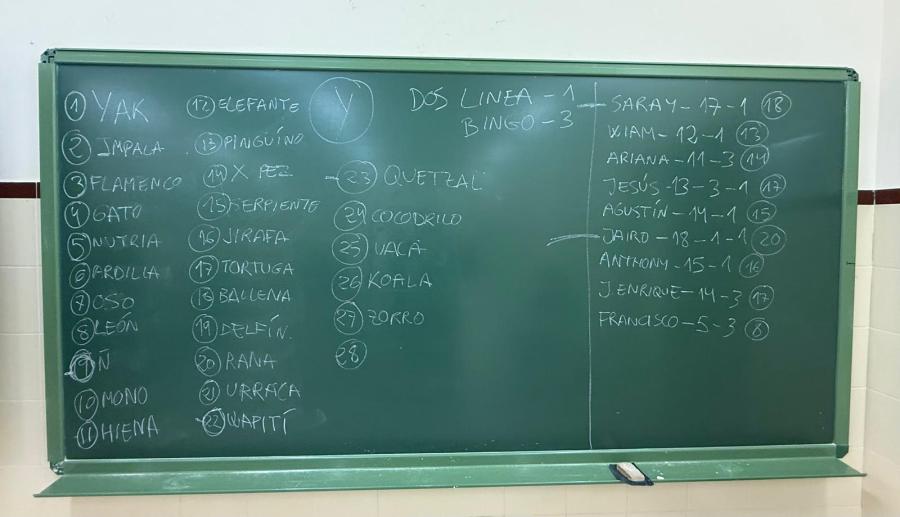 1 YAK
2 IMPALA
3 FLAMENCO
4 GATO
5 NUTRIA
6 ARDILLA
7 OSO
8 LEÓN
9 Ñ
10 MONO
11 HIENA
12 ELEFANTE
13 PINGÜINO
14 X PEZ
15 SERPIENTE
16 JIRAFA
17 TORTUGA
18 BALLENA
19 DELFÍN.
20 RANA
21 URRACA
22 WAPITÍ
Y
23 QUETZAL
24 COCODRILO
25 VACA
26 KOALA
27 ZORRO
28
DOS LINEA - 1
BINGO - 3
SARAY - 17 - 1 18
WIAM - 12 - 1 13
ARIANA - 11 - 3 14
JESÚS - 13 - 3 - 1 17
AGUSTÍN - 14 - 1 15
JAIRO - 18 - 1 - 1 20
ANTHONY - 15 - 1 16
J. ENRIQUE - 14 - 3 17
FRANCISCO - 5 - 3 8